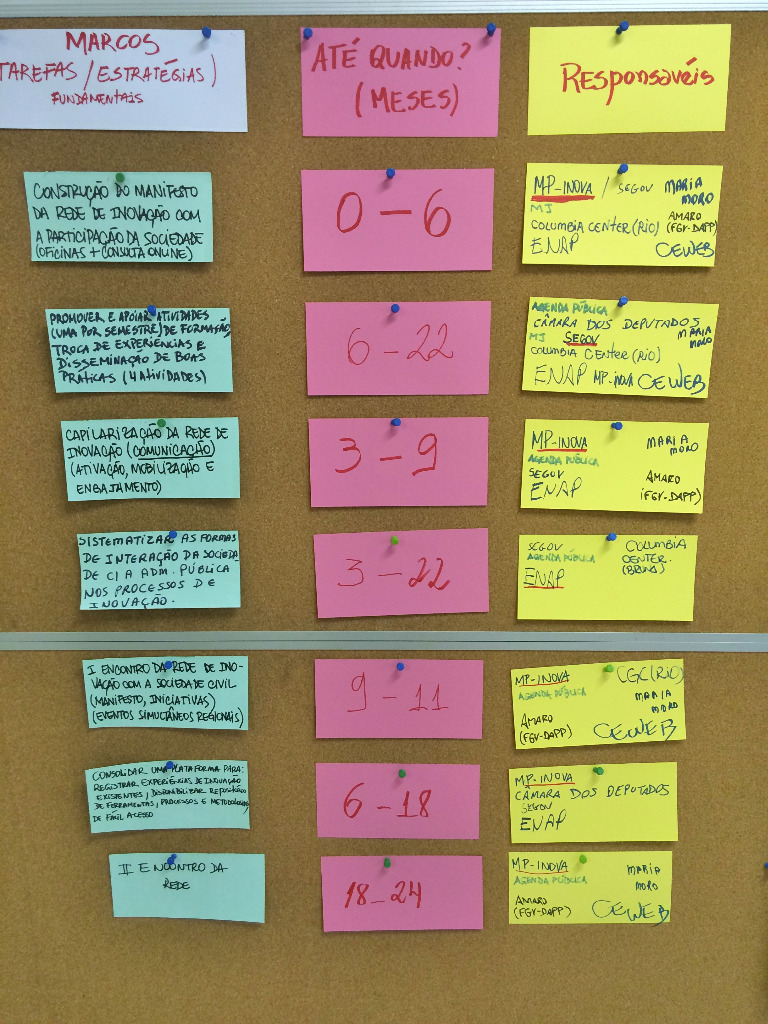 MARCOS
TAREFAS / ESTRATÉGIAS)
FUNDAMENTAIS
ATÉ QUANDO?
(MESES)
Responsavéis
CONSTRUÇÃO DO MANIFESTO
DA REDE DE INOVAÇÃO COM
A PARTICIPAÇÃO DA SOCIEDADE
(OFICINAS + CONSULTA ONLINE)
0 - 6
MP-INOVA / SEGOV MARIA
MORO
MJ
AMARO
COLUMBIA CENTER (RIO) (FGV-DAPP)
ENAP CEWEB
PROMOVER E APOIAR ATIVIDADES
(UMA POR SEMESTRE) DE FORMAÇÃO,
TROCA DE EXPERIÊNCIAS E
DISSEMINAÇÃO DE BOAS
PRÁTICAS (4 ATIVIDADES)
6 - 22
AGENDA PÚBLICA
CÂMARA DOS DEPUTADOS
MJ SEGOV MARIA
MORO
COLUMBIA CENTER (RIO)
ENAP MP-INOVA CEWEB
CAPILARIZAÇÃO DA REDE DE
INOVAÇÃO (COMUNICAÇÃO)
(ATIVAÇÃO, MOBILIZAÇÃO E
ENGAJAMENTO)
3 - 9
MP-INOVA MARIA
MORO
AGENDA PÚBLICA
SEGOV AMARO
ENAP (FGV-DAPP)
SISTEMATIZAR AS FORMAS
DE INTERAÇÃO DA SOCIEDA
DE C/ A ADM. PÚBLICA
NOS PROCESSOS DE
INOVAÇÃO.
3 - 22
SEGOV COLUMBIA
AGENDA PÚBLICA CENTER.
ENAP (BRUNA)
I ENCONTRO DA REDE DE INO-
VAÇÃO COM A SOCIEDADE CIVIL
(MANIFESTO, INICIATIVAS)
(EVENTOS SIMULTÂNEOS REGIONAIS)
9 - 11
MP-INOVA CGC (RIO)
AGENDA PÚBLICA MARIA
MORO
AMARO
(FGV-DAPP) CEWEB
CONSOLIDAR UMA PLATAFORMA PARA:
REGISTRAR EXPERIÊNCIAS DE INOVAÇÃO
EXISTENTES, DISPONIBILIZAR REPOSITÓRIO
DE FERRAMENTAS, PROCESSOS E METODOLOGIAS
DE FÁCIL ACESSO
6 - 18
MP-INOVA
CÂMARA DOS DEPUTADOS
SEGOV
ENAP
II ENCONTRO DA
REDE
18 - 24
MP-INOVA MARIA
AGENDA PÚBLICA MORO
AMARO
(FGV-DAPP) CEWEB